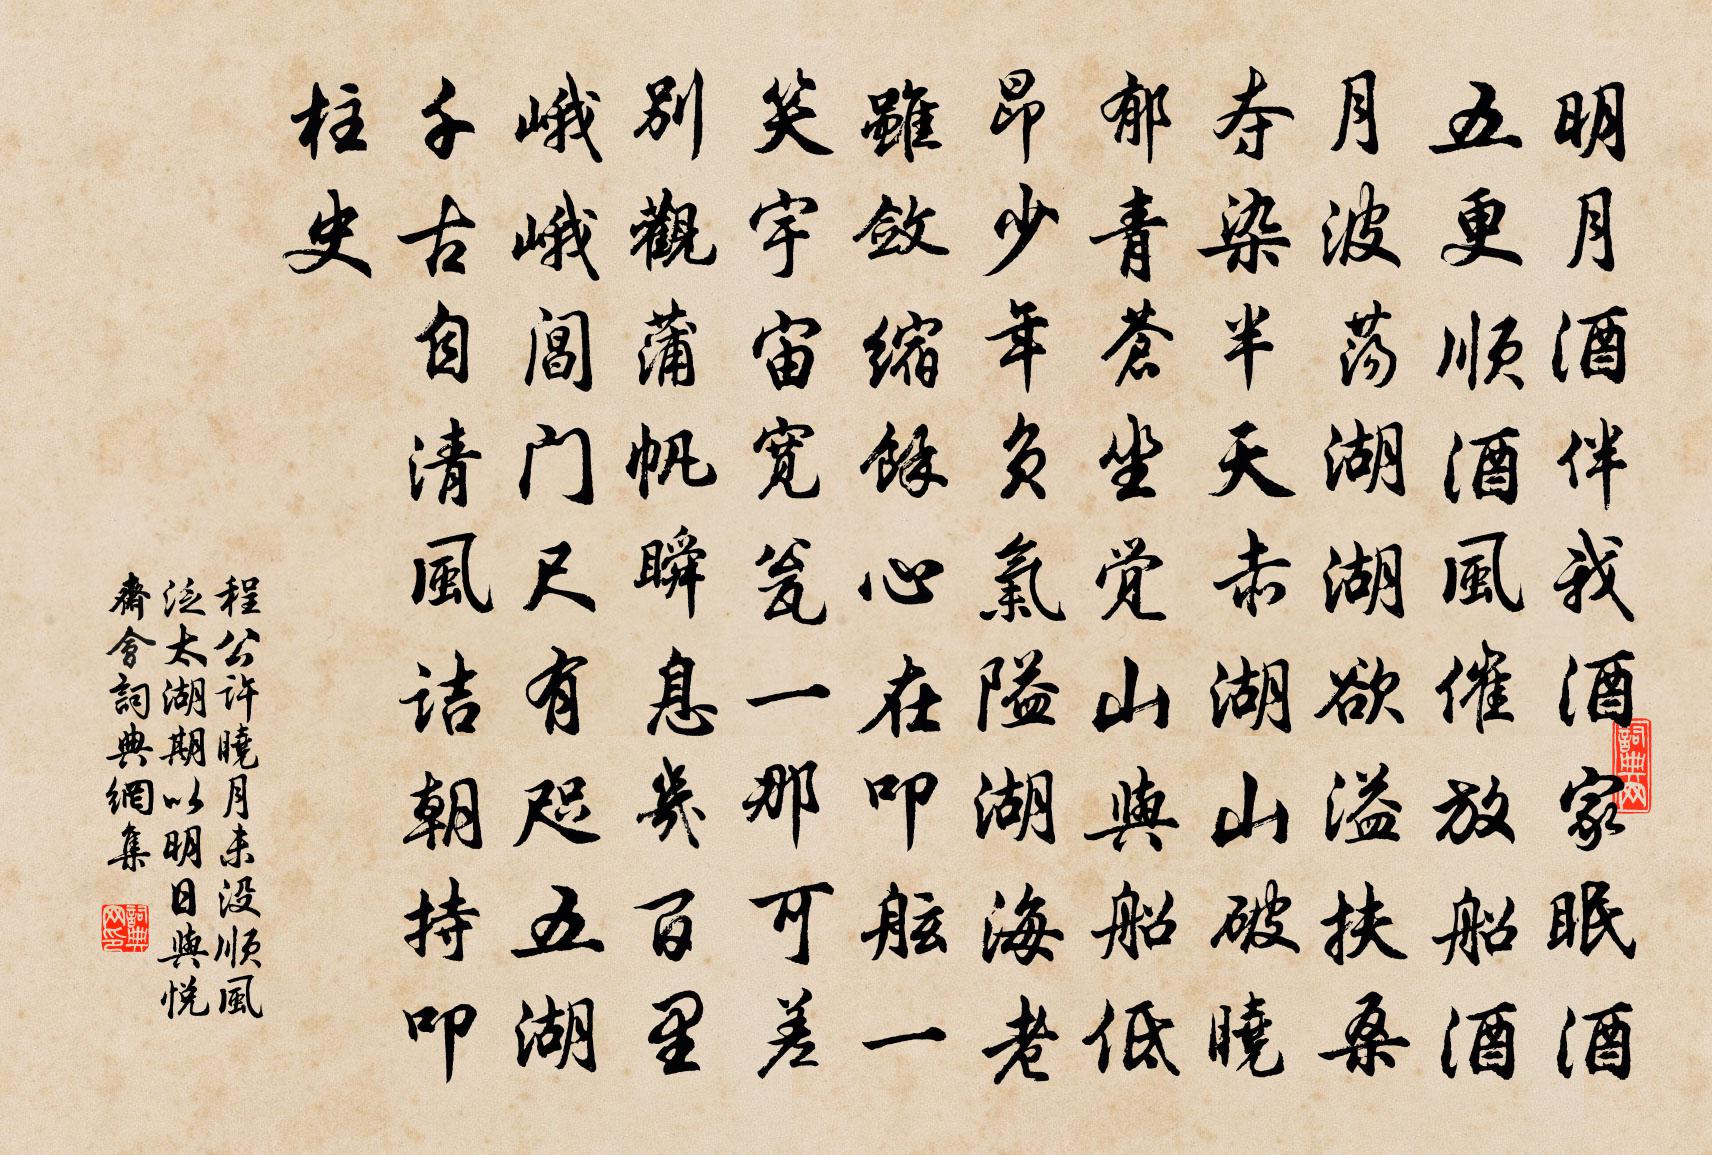 明月酒伴我酒家眠酒
五更顺酒風催放船酒
月波荡湖湖欲溢扶桑
夺染半天赤湖山破曉
郁青苍坐觉山與船低
昂少年负氣隘湖海老
雖敛缩餘心在叩舷一
笑宇宙宽瓮一那可差
别觀蒲帆瞬息幾百里
峨峨閶门尺有咫五湖
千古自清風诘朝持叩
柱史
程公许曉月未没顺風
泛太湖期以明日與悦
齋會詞典網集
詞典网
詞典网印